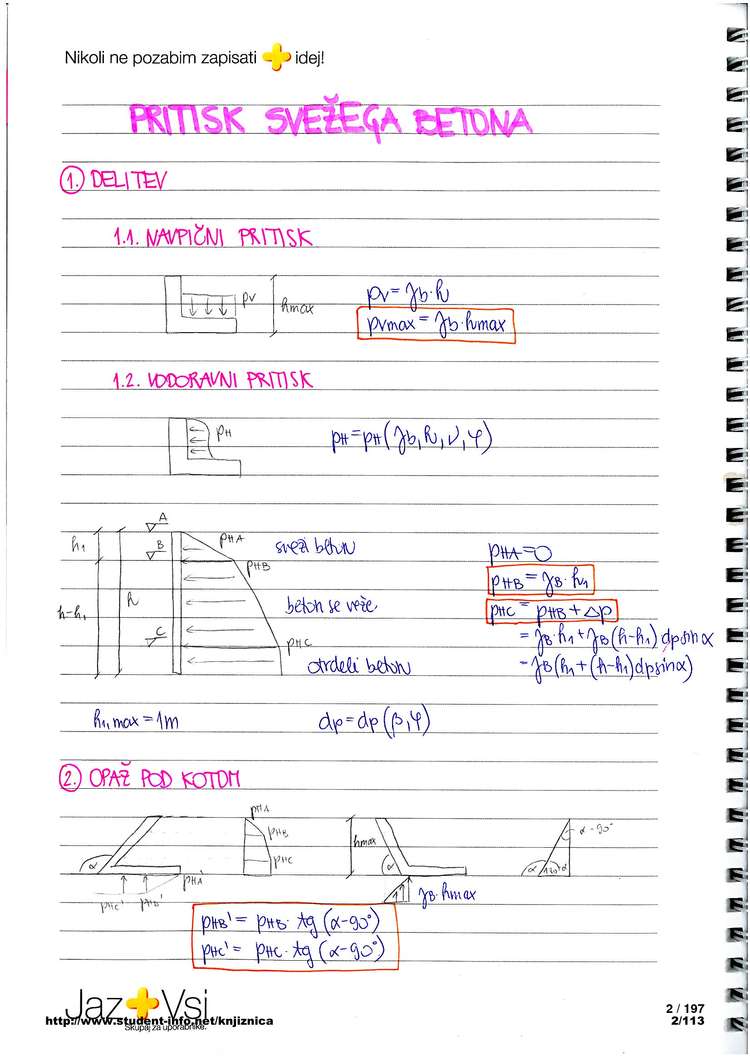 Nikoli ne pozabim zapisati + idej!
PRITISK SVEŽEGA BETONA
1. DELITEV
1.1. NAVPIČNI PRITISK
pv
hmax
pv = γb·h
pvmax = γb·hmax
1.2. VODORAVNI PRITISK
pH
pH = pH(γb, h, ν, φ)
A
h1
B
h
h-h1
C
pHA
pHB
pHC
sveži beton
beton se veže
otrdeli beton
pHA = 0
pHB = γB·h1
pHC = pHB + Δp
= γB·h1 + γB(h-h1) dp sin α
- γB(h1 + (h-h1) dp sin α)
h1, max = 1m
dp = dp(β, φ)
2. OPAŽ POD KOTOM
α
pHA'
pHC'
pHB'
pHA
pHB
pHC
hmax
α
γB·hmax
α-90°
α
pHB' = pHB·tg(α-90°)
pHC' = pHC·tg(α-90°)
Jaz+Vsi
Skupaj za uporabnike.
http://www.student-info.net/knjiznica
2 / 197
2/113